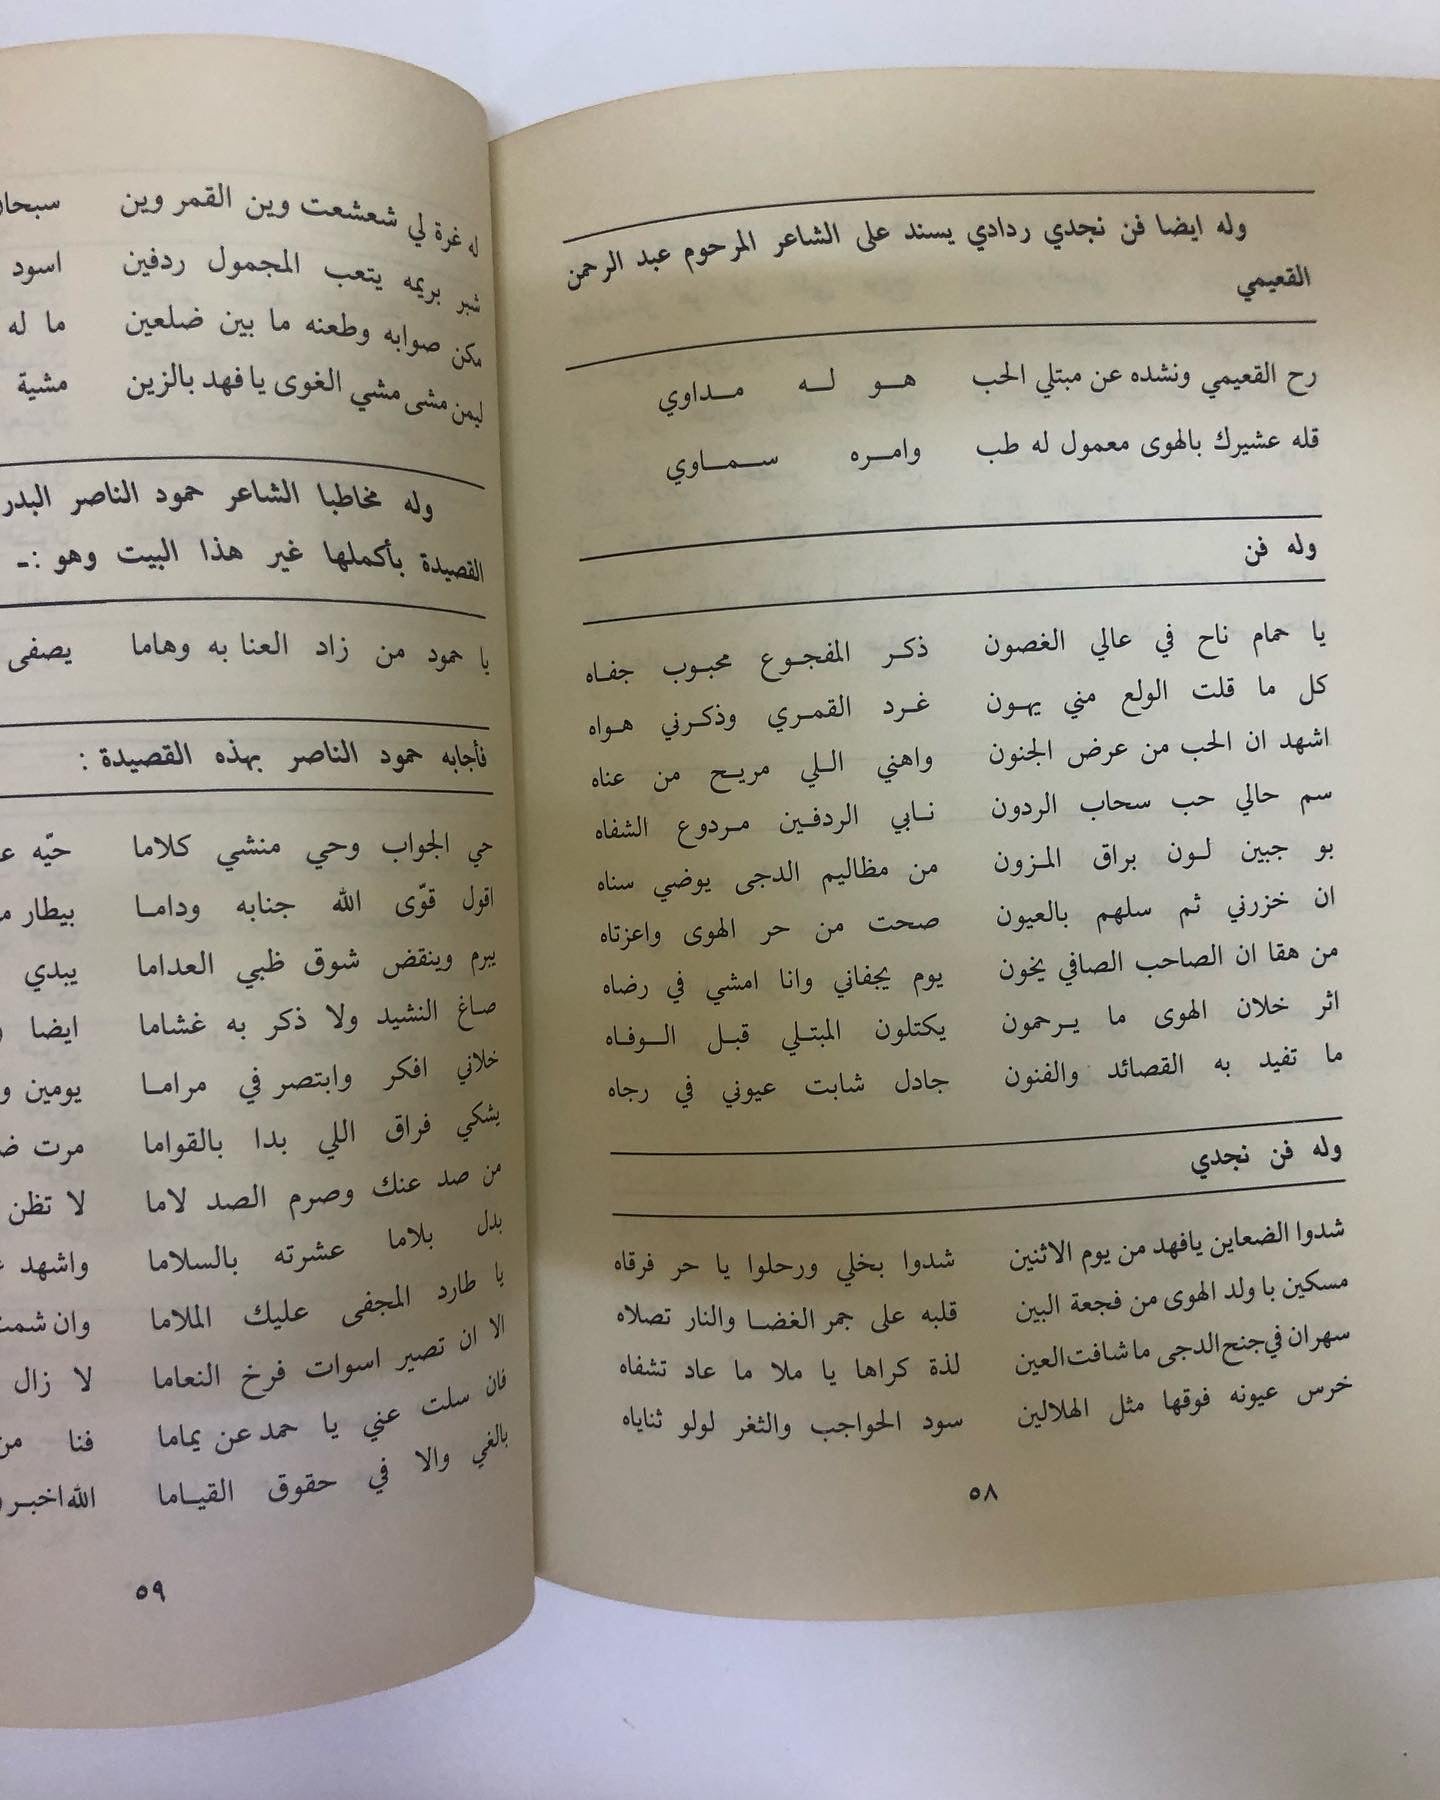 وله ايضا فن نجدي ردادي يسند على الشاعر المرحوم عبد الرحمن
القعيمي
رح القعيمي ونشده عن مبتلي الحب هــو لــه مــداوي
قله عشيرك بالهوى معمول له طب وامـره سـمـاوي
وله فن
يا حمام ناح في عالي الغصون ذكـر المفجـوع محبـوب جفـاه
كل ما قلت الولع مني يهـون غـرد القمـري وذكـرني هـواه
اشهد ان الحب من عرض الجنون واهني اللي مريـح من عناه
سم حالي حب سحاب الردون نـابي الردفـين مـردوع الشفاه
بو جبين لـون براق المـزون من مظاليم الدجى يوضي سناه
ان خزرني ثم سلهم بالعيون صحت من حر الهوى واعزتاه
من هقا ان الصاحب الصافي يخون يوم يجفاني وانا امشي في رضاه
اثر خلان الهوى ما يـرحمون يكتلون المبتـلي قبـل الـوفـاه
ما تفيد به القصائد والفنون جادل شابت عيوني في رجاه
وله فن نجدي
شدوا الضعاين يافهد من يوم الاثنين شدوا بخلي ورحلوا يا حر فرقاه
مسكين با ولد الهوى من فجعة البين قلبه على جمر الغضـا والنار تصلاه
سهران في جنح الدجى ما شافت العين لذة كراها يا ملا ما عاد تشفاه
خرس عيونه فوقها مثل الهلالين سود الحواجب والثغر لولو ثناياه
٥٨
له غرة لي شعشعت وين القمر وين سبحان
شبر بريمه يتعب المجمول ردفين اسود
مكن صوابه وطعنه ما بين ضلعين ما له
ليمن مشى مشي الغوى يا فهد بالزين مشية
وله مخاطبا الشاعر حمود الناصر البدر
القصيدة بأكملها غير هذا البيت وهو :ـ
يا حمود من زاد العنا به وهاما يصفى
فأجابه حمود الناصر بهذه القصيدة :
حي الجواب وحي منشي كلاما حيّه
اقول قوّى الله جنابه ودامـا بيطار
يبرم وينقض شوق ظبي العداما يبدي
صـاغ النشيد ولا ذكر به غشاما ايضا
خلاني افكر وابتصر في مرامـا يومين
يشكي فراق اللي بدا بالقواما مرت
من صد عنك وصرم الصد لاما لا تظن
بدل بلاما عشرته بالسلاما واشهد
يا طارد المجفى عليك الملاما وان
الا ان تصير اسوات فرخ النعاما لا زال
فان سلت عني يا حمد عن يماما فنا
بالغي والا في حقوق القيـاما الله
٥٩